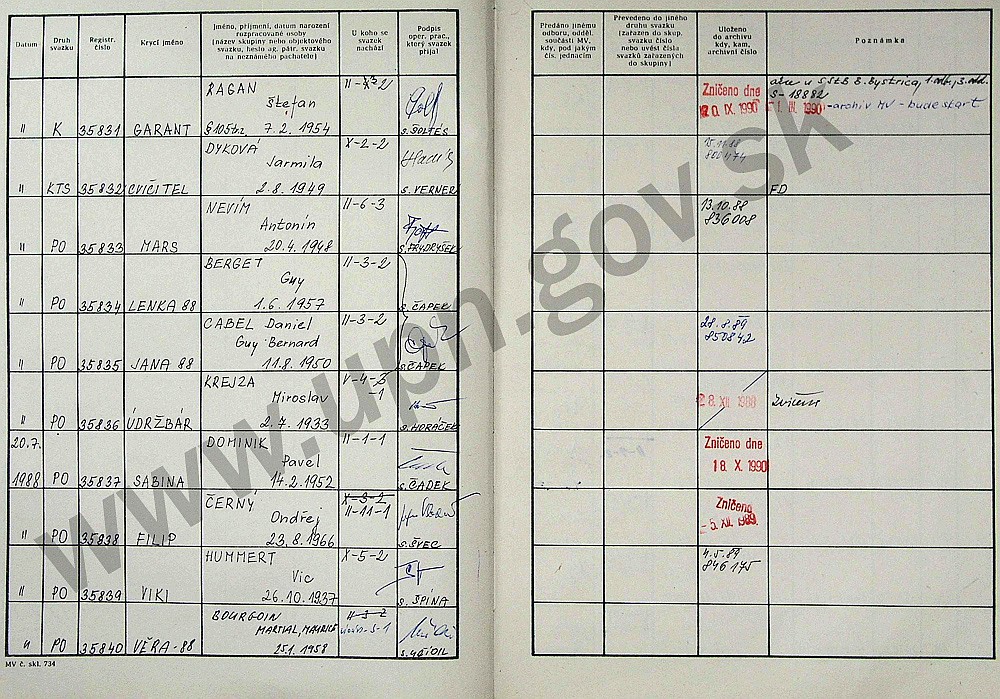 Datum
Druh svazku
Registr. číslo
Krycí jméno
Jméno, příjmení, datum narození
rozpracované osoby
(název skupiny nebo objektového
svazku, heslo ag. pátr. svazku
na neznámého pachatele)
U koho se svazek nachází
Podpis oper. prac., který svazek přijal
Předáno jinému
odboru, odděl.
součásti MV,
kdy, pod jakým
čís. jednacím
Převedeno do jiného
druhu svazku
(zařazen do skup.
svazku číslo
nebo uvést čísla
svazků zařazených
do skupiny)
Uloženo
do archivu
kdy, kam,
archivní číslo
Poznámka
RAGAN II-2
Štefan
" K 35831 GARANT §105tz, 7.2.1954 s. ŠOLTÉS
Zničeno dne
20. IX. 1990
S-18882
-archiv MV - bude skart
DYKOVÁ X-2-2
Jarmila
" KTS 35832 CVIČITEL 2.8.1949 s. VERNER
15.11.88
800474
FD
NEVÍM II-6-3
Antonín
" PO 35833 MARS 20.4.1948 s. FRYDRYŠEK
13.10.88
836008
BERGET II-3-2
Guy
" PO 35834 LENKA 88 1.6.1957 s. ČAPEK
CABEL Daniel II-3-2
Guy Bernard
" PO 35835 JANA 88 11.8.1950 s. ČAPEK
28.8.89
850842
KREJZA V-4-
-1
Miroslav
" PO 35836 ÚDRŽBÁR 2.7.1933 s. HORÁČEK
28. XII. 1988
zničeno
20.7. DOMINIK II-1-1
Pavel
1988 PO 35837 SABINA 14.2.1952 s. ČADEK
Zničeno dne
18. X. 1990
ČERNÝ X-3-2
II-11-1
Ondřej
" PO 35838 FILIP 23.8.1966 s. ŠVEC
Zničeno
-5. XII. 1989
HUMMERT X-5-2
Vic
" PO 35839 VIKI 26.10.1937 s. ŠPÍNA
4.5.89
846175
BOURGOIN II-3-2
MARTIAL, MAURICE
" PO 35840 VĚRA-88 25.1.1958
MV č. skl. 734
www.upn.gov.sk